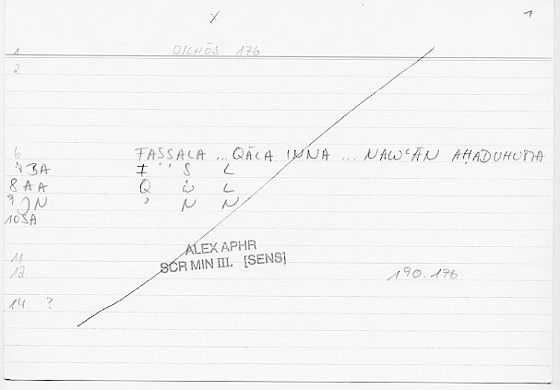 X 1
1 DICHŌS 176
2
6 FAṢṢALA ... QĀLA INNA ... NAWʿĀN AḤADUHUMĀ
7 BA F Ṣ L
8 AA Q W L
9 JN ʾ N N
10 SA
ALEX APHR
11
SCR MIN III. [SENS]
12 190.176
14 ?